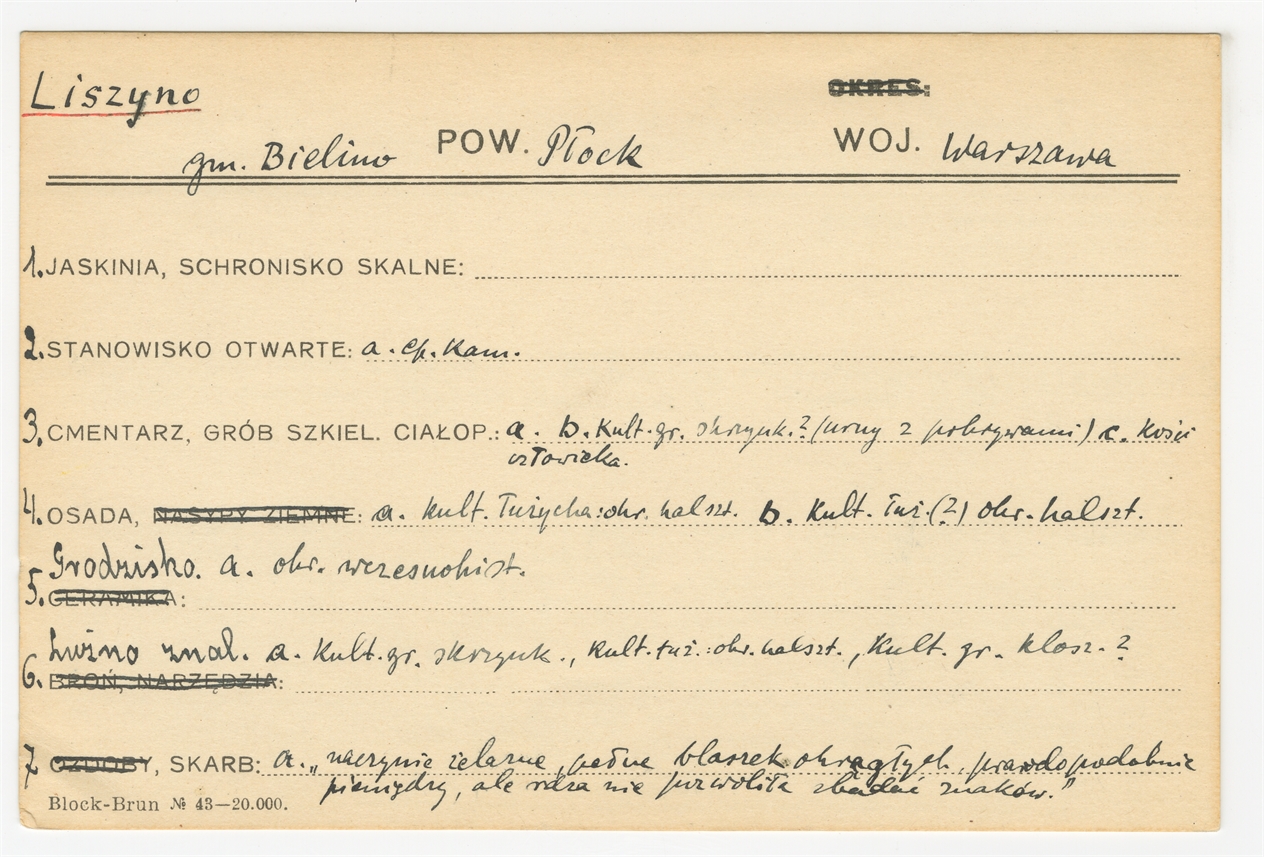 Liszyno
OKRES:
gm. Bielino POW. Płock WOJ. Warszawa
1. JASKINIA, SCHRONISKO SKALNE:
2. STANOWISKO OTWARTE: a. ep. kam.
3. CMENTARZ, GRÓB SZKIEL. CIAŁOP.: a. b. kult. gr. skrzynk.? (urny z pokrywami) c. kości
człowieka.
4. OSADA, NASYPY ZIEMNE: a. kult. łużycka: okr. halszt. b. kult. łuż. (?) okr. halszt.
Grodzisko. a. okr. wczesnohist.
5. CERAMIKA:
Luźno znal. a. kult. gr. skrzynk., kult. łuż.: okr. halszt., kult. gr. klosz.?
6. BROŃ, NARZĘDZIA:
7 OZDOBY, SKARB: a. „naczynie żelazne, pełne blaszek okrągłych, prawdopodobnie
pieniędzy, ale rdza nie pozwoliła zbadać znaków."
Block-Brun № 43—20.000.